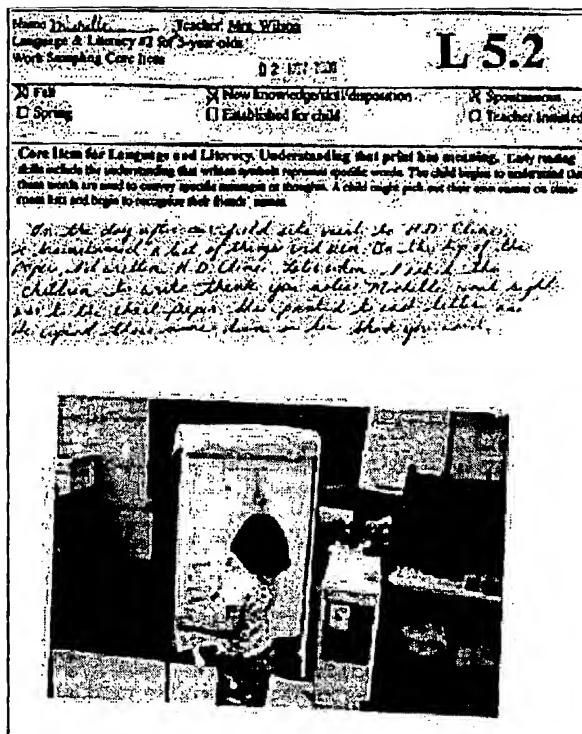 Name Michelle Teacher Mrs. Wilson
Language & Literacy #2 for 5-year olds
Work Sampling Core Item
L 5.2
Fall
New knowledge/skill/disposition
Spontaneous
Spring
Established for child
Teacher Initiated
Core Item for Language and Literacy. Understanding that print has meaning. Early reading
skills include the understanding that written symbols represent specific words. The child begins to understand that
these words are used to convey specific messages or thoughts. A child might pick out their own names on class-
room lists and begin to recognize their friends' names.
On the day after our field site visit to H.D. Clinic,
I brainstormed a list of things we'd seen. On the top of the
paper, I'd written H.D. Clinic. Later when I asked the
children to write thank you notes Michelle went right
out to the chart paper. She pointed to each letter as
she copied down on her thank you card.